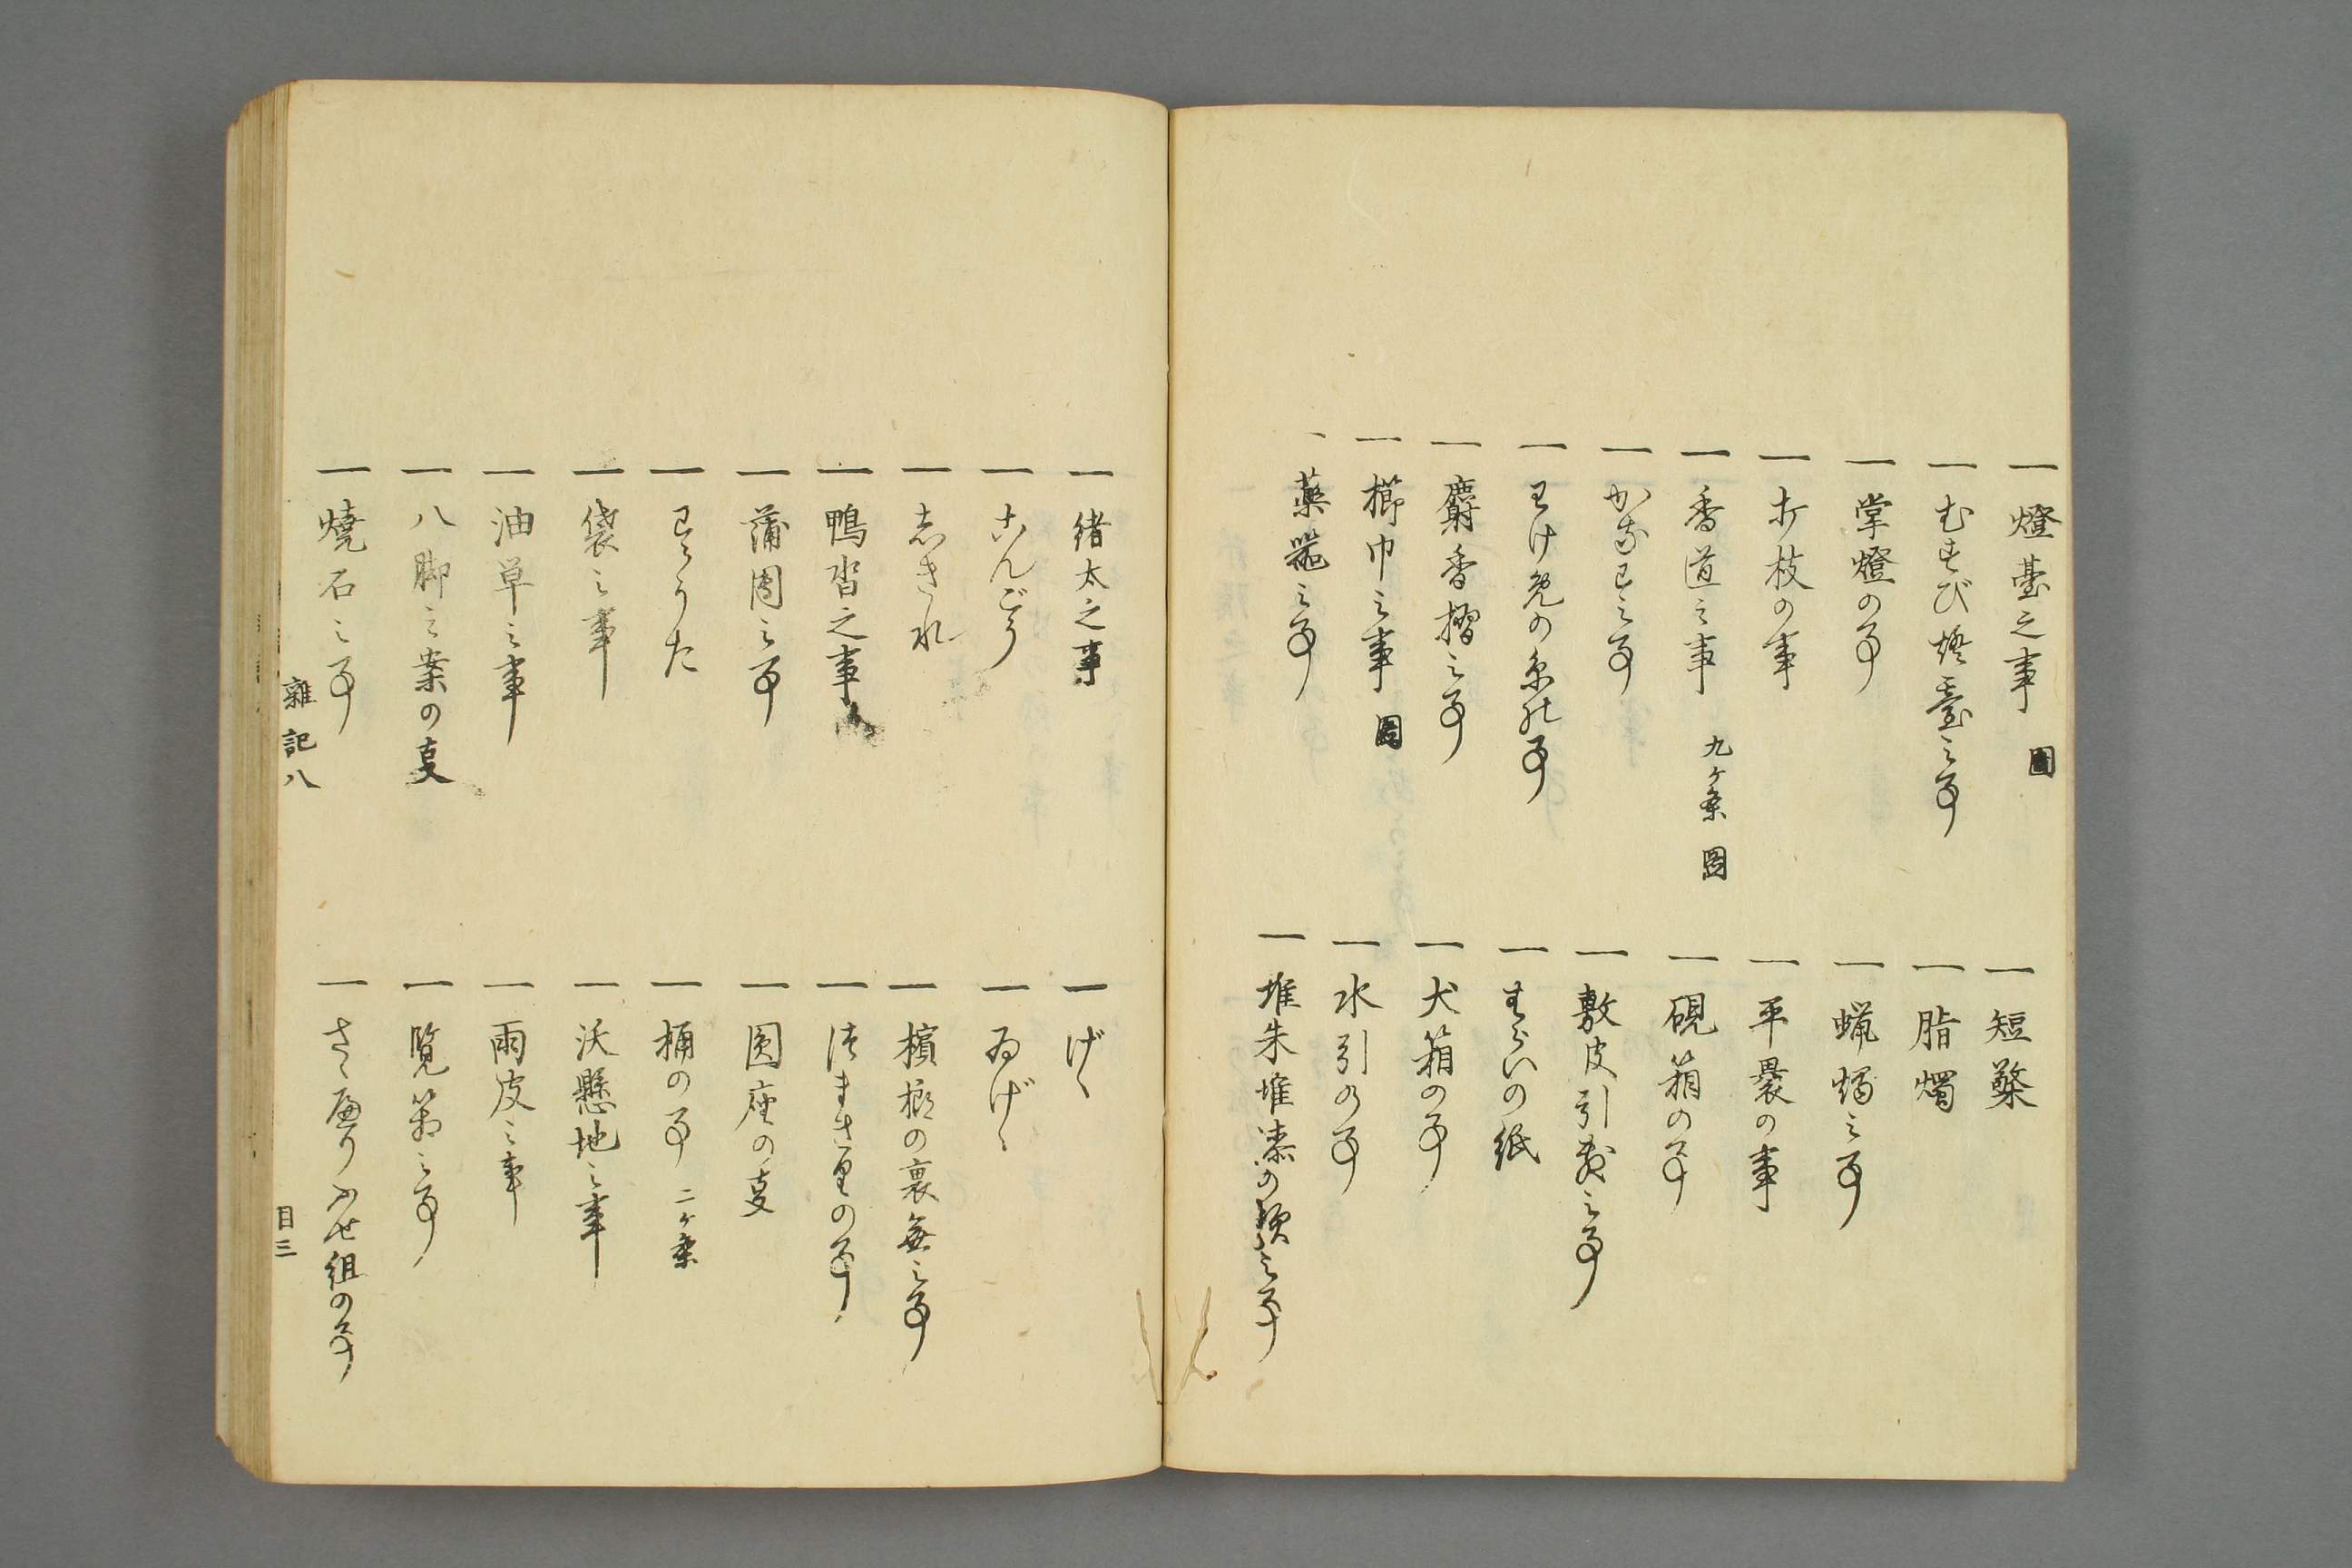 一 燈臺之事 圖
一 短檠
一 むすび燈臺之事
一 脂燭
一 掌燈の事
一 蝋燭之事
一 打枝の事
一 平裹の事
一 香道之事 九ケ条 圖
一 硯箱の事
一 之事
一 敷皮引敷之事
一 わけ免の糸の事
一 の紙
一 麝香摺之事
一 犬箱の事
一 櫛巾之事 圖
一 水引の事
一 薬器之事
一 堆朱堆漆の類之事
一 緒太之事
一 げゝ
一 こんごう
一 ゐげゝ
一 しきれ
一 檳榔の裏無之事
一 鴨沓之事
一 の事
一 蒲團之事
一 圓座の事
一 わらうた
一 桶の事 二ケ条
一 袋之事
一 沃懸地之事
一 油單之事
一 雨皮之事
一 八脚之案の事
一 覧箱之事
一 焼石之事
一 さゝべりふせ組の事
雜記八
目三